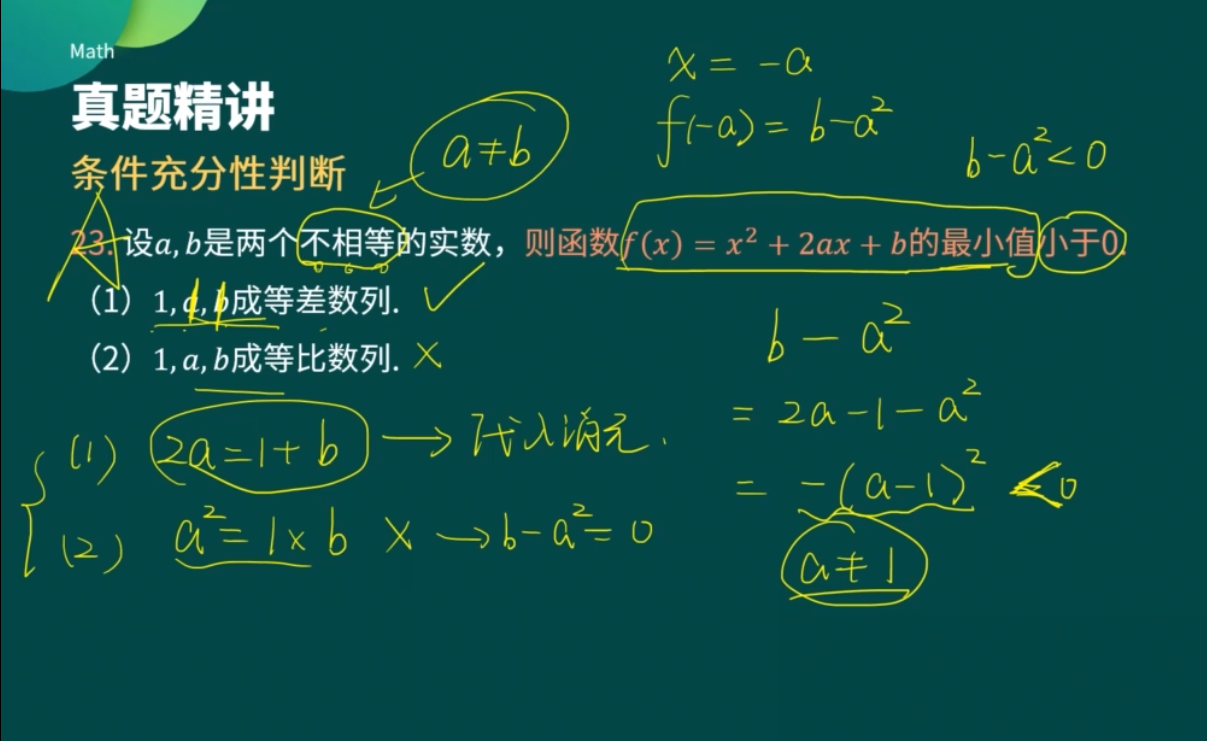 Math
真题精讲
条件充分性判断
a≠b
x = -a
f(-a) = b-a²
b-a²<0
23. 设a, b是两个不相等的实数，则函数f(x) = x² + 2ax + b的最小值小于0.
A
（1）1, a, b成等差数列. ✓
（2）1, a, b成等比数列. ×
(1) 2a=1+b → 代入消元.
(2) a²=1×b × → b-a²=0
b - a²
= 2a-1-a²
= -(a-1)² < 0
a≠1